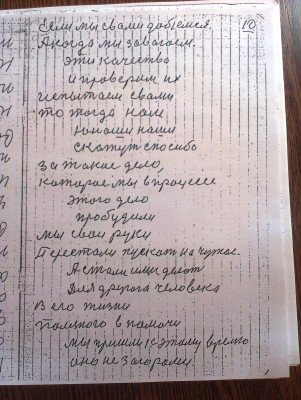 10
Если мы свами добъемся.
А когда мы завоюем.
эти качества
и проверим их
испытаем свами
то тогда нам
юноши наши
скажут спосибо
за такое дело,
которое мы в процессе
этого дело
пробудили
мы свои руки
Перестали пускат на чужое.
А стали ими
для друга человека
В его жизни
в помочи
мы пришли к этому время
оно не за горами